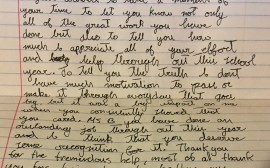 your time to let you know not only
all of the great work you have
done but also to tell you how
much I appreciate all of your effort
and help through out this school
year. To tell you the truth I don't
have much motivation to pass or
make it through everyday that goes
by but it was a big impact on me
when you consistently showed that
you cared. As you have done an
outstanding job through out this year
and I think that you deserve
some recognition for it. Thank you
for the tremendous help, most of all thank